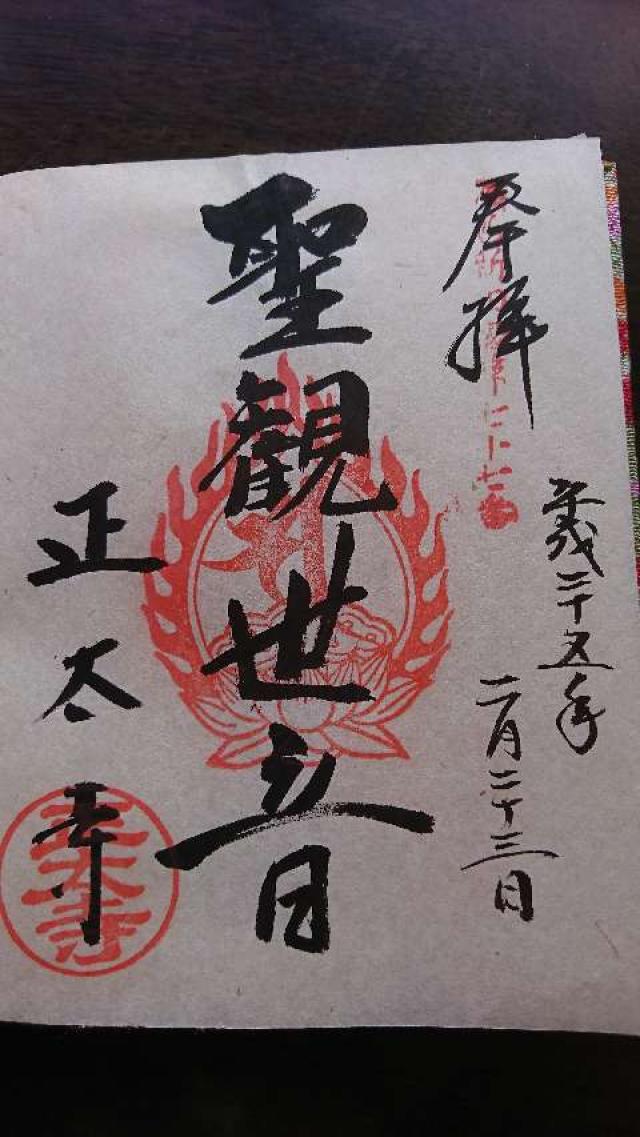 奉拝
平成二十五年
二月二十三日
聖観世音
正太寺
正太寺